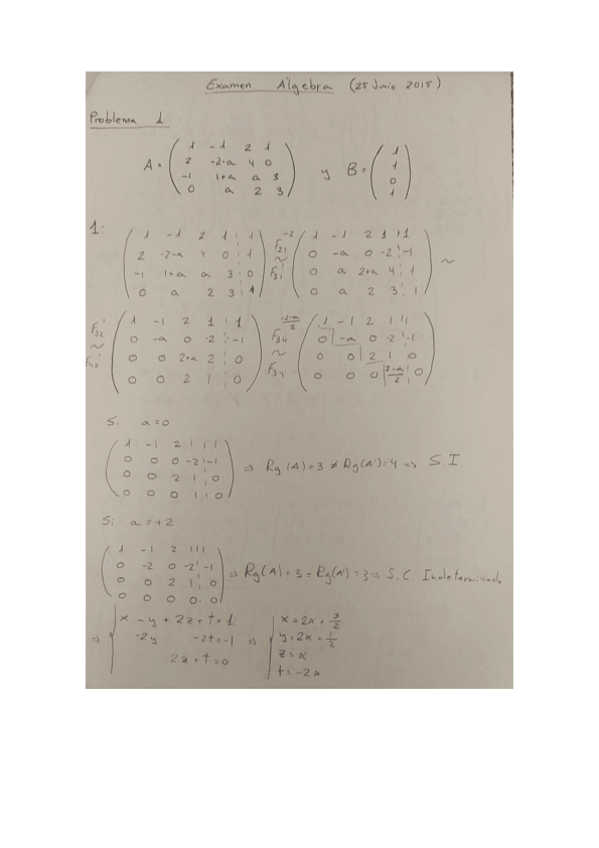 Examen Álgebra (25 Junio 2015)
Problema 1
A = ( 1 -1 2 1
2 -2-a 4 0
-1 1+a a 3
0 a 2 3 ) y B = ( 1
1
0
1 )
1:
( 1 -1 2 1 | 1
2 -2-a 4 0 | 1
-1 1+a a 3 | 0
0 a 2 3 | 1 ) F21^-2 ~ F31^1 ( 1 -1 2 1 | 1
0 -a 0 -2 | -1
0 a 2+a 4 | 1
0 a 2 3 | 1 ) ~
F32^1 ~ ( 1 -1 2 1 | 1
0 -a 0 -2 | -1
0 0 2+a 2 | 0
0 0 2 1 | 0 ) F34 ~ F34 ( 1 -1 2 1 | 1
0 -a 0 -2 | -1
0 0 2 1 0
0 0 0 2-a/2 | 0 )
Si a=0
( 1 -1 2 1 | 1
0 0 0 -2 | -1
0 0 2 1 | 0
0 0 0 1 | 0 ) => Rg (A) = 3 ≠ Rg(A') = 4 => S I
Si a=+2
( 1 -1 2 1 | 1
0 -2 0 -2 | -1
0 0 2 1 | 0
0 0 0 0 0 ) => Rg(A) = 3 = Rg(A') = 3 => S.C. Indeterminado
=> | x - y + 2z + t = 1
-2y -2t = -1
2z + t = 0 => | x = 2α + 3/2
y = 2α + 1/2
z = α
t = -2α